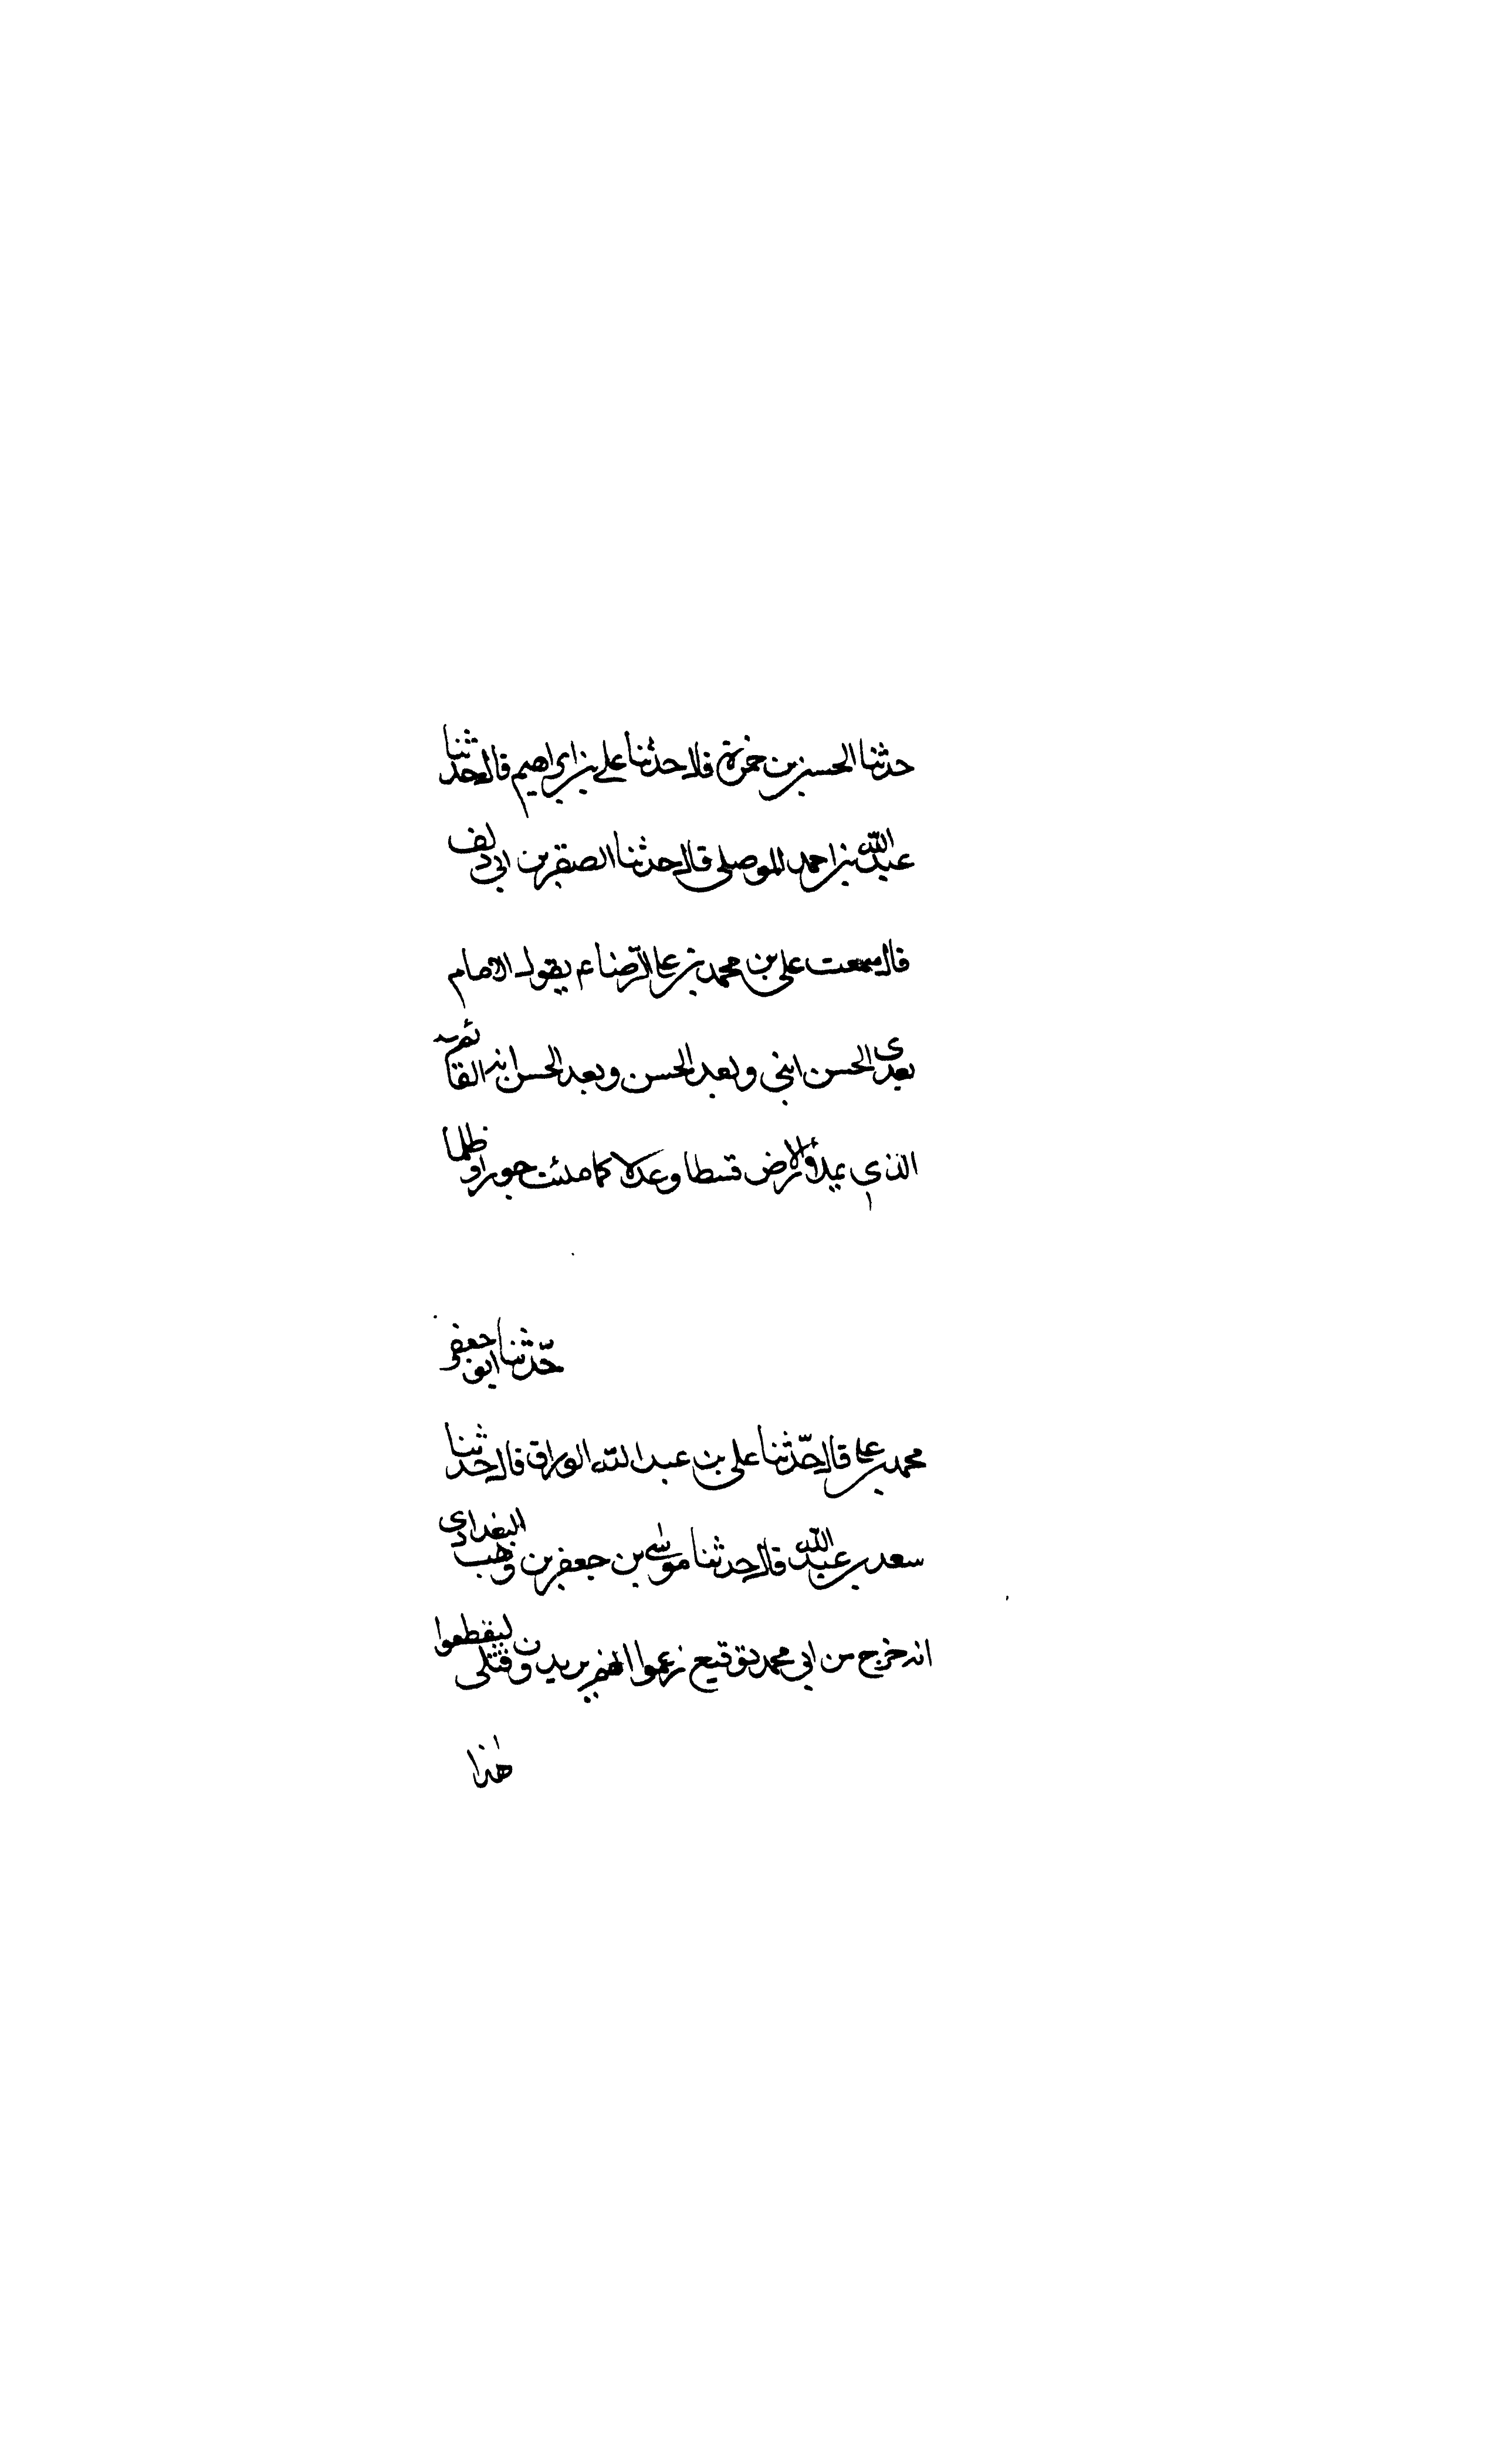 حدثنا الحسن بن حمزة قال حدثنا علي بن ابراهيم قال حدثنا
عبد الله بن احمد الموصلي قال حدثنا الصقر بن ابي دلف
قال سمعت علي بن محمد بن علي الرضا ع م يقول الامام
بعدى الحسن ابني وبعد الحسن وبعد الحسن ابنه القائم
الذي يملأ الارض قسطا وعدلا كما ملئت جورا و ظلما
حدّثنا ابو جعفر
محمد بن علي قال حدّثنا علي بن عبد الله الوراق قال حدثنا
سعد بن عبد الله قال حدثنا موسى بن جعفر بن وهب البغدادي
انه خرج من ابي محمد توقيع زعموا انهم يريدون قتلى ليقطعوا
هذا